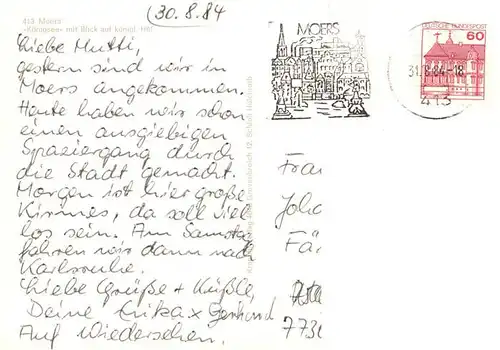 (30.8.84
413 Moers
Liebe Mutti,
gestern sind wir in
Moers angekommen.
Heute haben wir schon
einen ausgiebigen
Spaziergang durch
die Stadt gemacht.
Morgen ist hier große
Kirmes, da soll viel
los sein. Am Samstag
fahren wir dann nach
Karlsruhe.
Liebe Grüße + Küßle,
Deine Erika x Gerhard
Auf Wiedersehen.
MOERS
31.8.84-18
413
DEUTSCHE BUNDESPOST
60
Frau
Joha
Fär
773